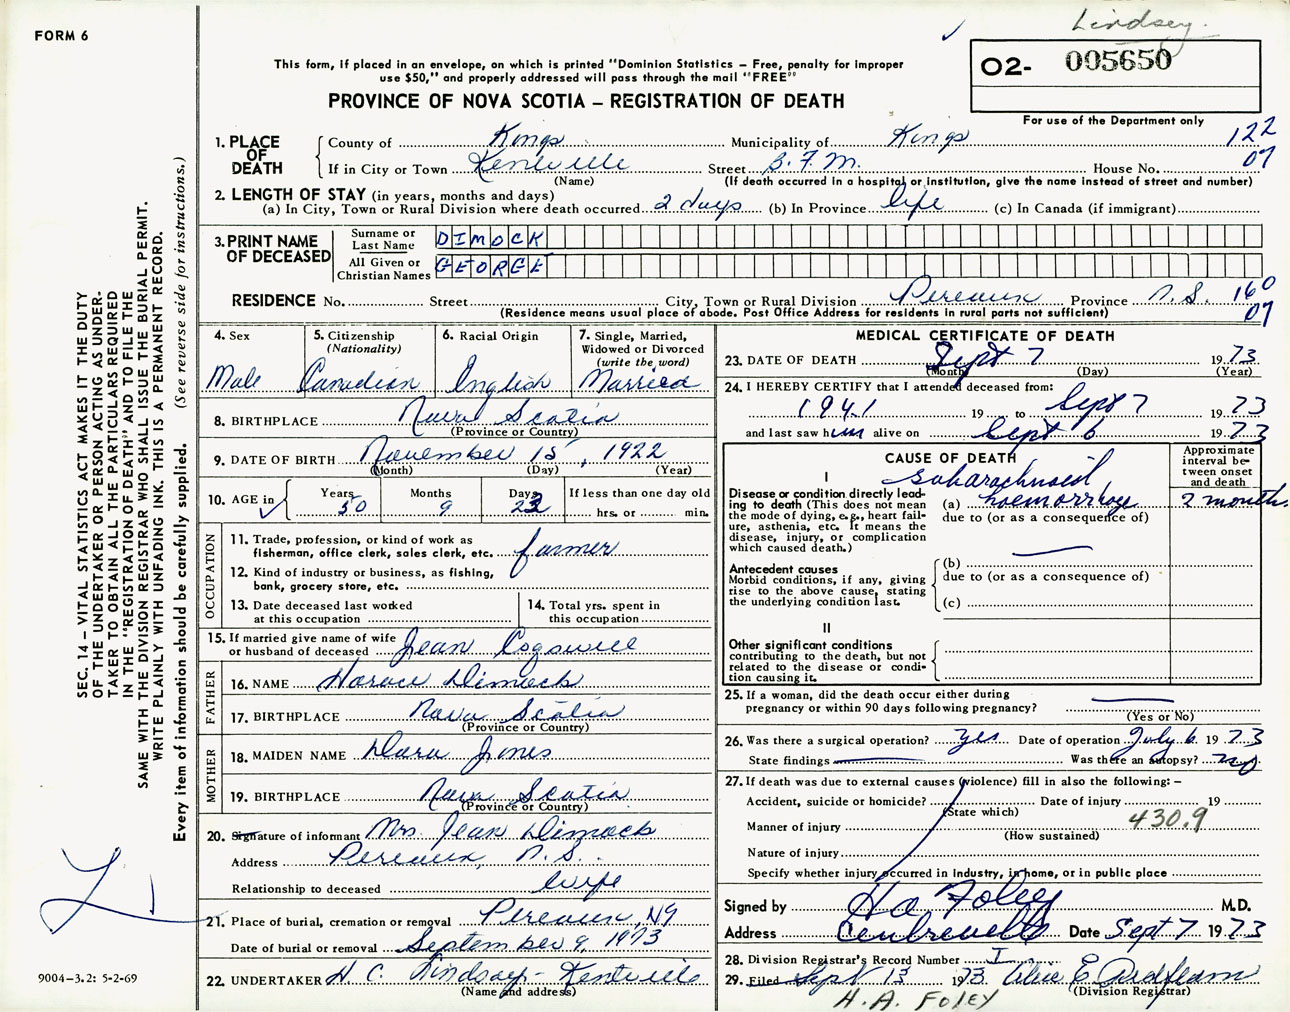 Lindsey.
FORM 6
O2- 005650
This form, if placed in an envelope, on which is printed "Dominion Statistics – Free, penalty for improper
use $50," and properly addressed will pass through the mail "FREE"
PROVINCE OF NOVA SCOTIA – REGISTRATION OF DEATH
For use of the Department only
1. PLACE OF DEATH
County of Kings Municipality of Kings 122
If in City or Town Kentville Street B.F.M. House No. 07
(Name) (If death occurred in a hospital or institution, give the name instead of street and number)
2. LENGTH OF STAY (in years, months and days)
(a) In City, Town or Rural Division where death occurred 2 days (b) In Province life (c) In Canada (if immigrant)
3. PRINT NAME OF DECEASED
Surname or Last Name DIMOCK
All Given or Christian Names GEORGE
RESIDENCE No. Street City, Town or Rural Division Pereaux Province N.S. 160
(Residence means usual place of abode. Post Office Address for residents in rural parts not sufficient) 07
4. Sex
Male
5. Citizenship
(Nationality)
Canadian
6. Racial Origin
English
7. Single, Married,
Widowed or Divorced
(write the word)
Married
8. BIRTHPLACE Nova Scotia
(Province or Country)
9. DATE OF BIRTH November 15, 1922
(Month) (Day) (Year)
10. AGE in Years 50 Months 9 Days 23 If less than one day old
hrs. or min.
OCCUPATION
11. Trade, profession, or kind of work as
fisherman, office clerk, sales clerk, etc. farmer
12. Kind of industry or business, as fishing,
bank, grocery store, etc.
13. Date deceased last worked
at this occupation
14. Total yrs. spent in
this occupation
15. If married give name of wife
or husband of deceased Jean Cogswell
FATHER
16. NAME Horace Dimock
17. BIRTHPLACE Nova Scotia
(Province or Country)
MOTHER
18. MAIDEN NAME Dara Jones
19. BIRTHPLACE Nova Scotia
(Province or Country)
20. Signature of informant Mrs. Jean Dimock
Address Pereaux, N.S.
Relationship to deceased wife
21. Place of burial, cremation or removal Pereaux, NS
Date of burial or removal September 9, 1973
22. UNDERTAKER H. C. Lindsay - Kentville
(Name and address)
MEDICAL CERTIFICATE OF DEATH
23. DATE OF DEATH Sept 7 1973
(Month) (Day) (Year)
24. I HEREBY CERTIFY that I attended deceased from:
1941 19 to Sept 7 1973
and last saw him alive on Sept 6 1973
CAUSE OF DEATH
Approximate
interval be-
tween onset
and death
I
Disease or condition directly lead-
ing to death (This does not mean
the mode of dying, e.g., heart fail-
ure, asthenia, etc. It means the
disease, injury, or complication
which caused death.)
subarachnoid
(a) haemorrhage 2 months
due to (or as a consequence of)
Antecedent causes
Morbid conditions, if any, giving
rise to the above cause, stating
the underlying condition last.
(b)
due to (or as a consequence of)
(c)
II
Other significant conditions
contributing to the death, but not
related to the disease or condi-
tion causing it.
25. If a woman, did the death occur either during
pregnancy or within 90 days following pregnancy?
(Yes or No)
26. Was there a surgical operation? yes Date of operation July 6 1973
State findings Was there an autopsy? no
27. If death was due to external causes (violence) fill in also the following: –
Accident, suicide or homicide? Date of injury 19
(State which)
Manner of injury 430.9
(How sustained)
Nature of injury
Specify whether injury occurred in Industry, in home, or in public place
Signed by H A Foley M.D.
Address Centreville Date Sept 7 1973
28. Division Registrar's Record Number I
29. Filed Sept 13 1973
(Division Registrar)
H. A. FOLEY
SEC. 14 – VITAL STATISTICS ACT MAKES IT THE DUTY
OF THE UNDERTAKER OR PERSON ACTING AS UNDER-
TAKER TO OBTAIN ALL THE PARTICULARS REQUIRED
IN THE "REGISTRATION OF DEATH" AND TO FILE THE
SAME WITH THE DIVISION REGISTRAR WHO SHALL ISSUE THE BURIAL PERMIT.
WRITE PLAINLY WITH UNFADING INK. THIS IS A PERMANENT RECORD.
Every item of information should be carefully supplied. (See reverse side for instructions.)
9004-3.2: 5-2-69